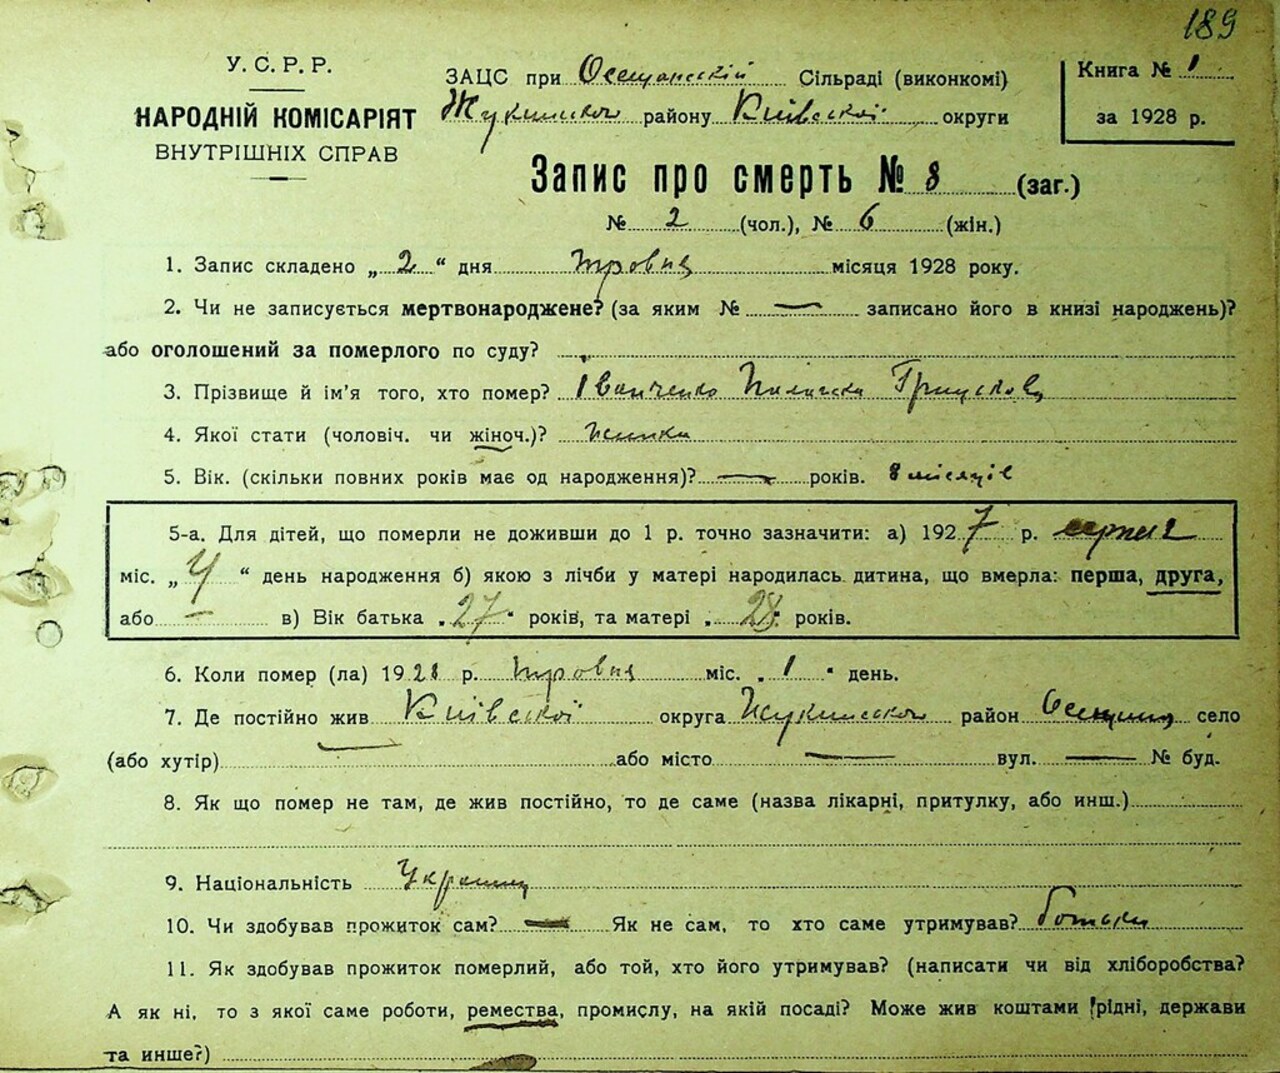 189
У. С. Р. Р.
НАРОДНІЙ КОМІСАРІЯТ
ВНУТРІШНІХ СПРАВ
ЗАЦС при Осещанській Сільраді (виконкомі)
Жукинсько району Київської округи
Книга № 1
за 1928 р.
Запис про смерть № 8 (заг.)
№ 2 (чол.), № 6 (жін.)
1. Запис складено „ 2 “ дня травня місяця 1928 року.
2. Чи не записується мертвонароджене? (за яким № — записано його в книзі народжень)?
або оголошений за померлого по суду?
3. Прізвище й ім’я того, хто помер? Іванченко
4. Якої стати (чоловіч. чи жіноч.)? жінка
5. Вік. (скільки повних років має од народження)? — років. 8 місяців
5-а. Для дітей, що померли не доживши до 1 р. точно зазначити: а) 1927 р. серпня
міс. „ “ день народження б) якою з лічби у матері народилась дитина, що вмерла: перша, друга,
або — в) Вік батька „ 27 “ років, та матері „ 28 “ років.
6. Коли помер (ла) 1928 р. травня міс. „ 1 “ день.
7. Де постійно жив Київської округа Жукинсько район Осещина село
(або хутір) — або місто — вул. — № буд.
8. Як що помер не там, де жив постійно, то де саме (назва лікарні, притулку, або инш.)
9. Національність
10. Чи здобував прожиток сам? — Як не сам, то хто саме утримував? батьки
11. Як здобував прожиток померлий, або той, хто його утримував? (написати чи від хліборобства?
А як ні, то з якої саме роботи, ремества, промислу, на якій посаді? Може жив коштами рідні, держави
та инше?)